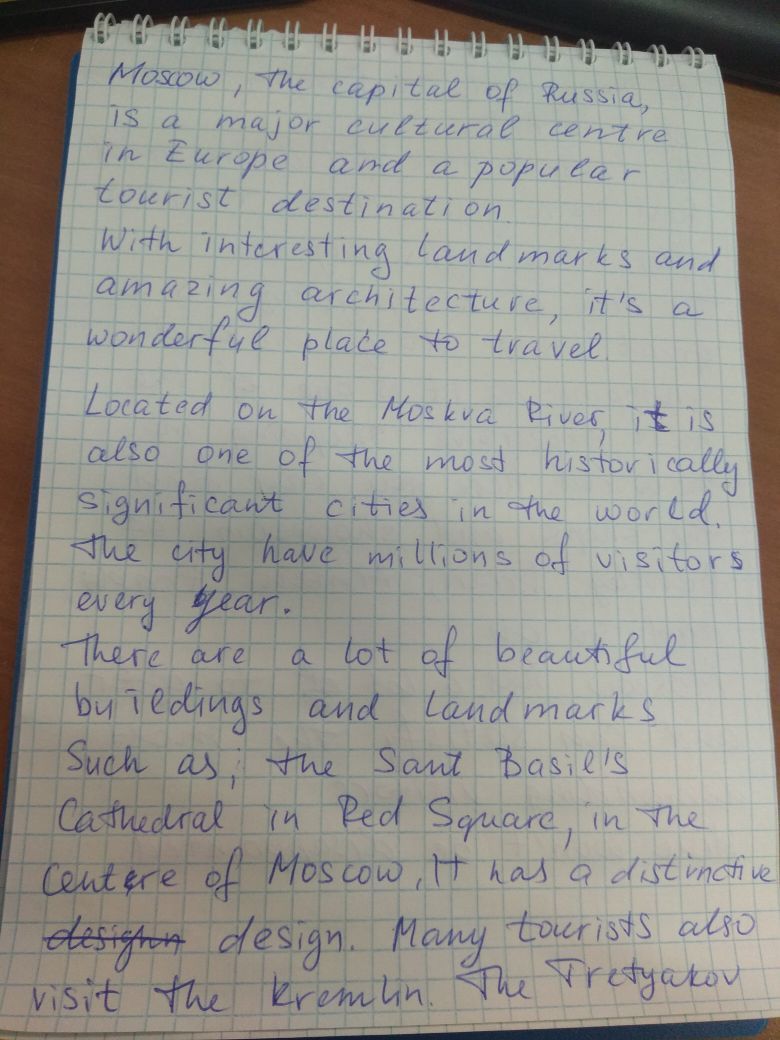 Moscow, the capital of Russia,
is a major cultural centre
in Europe and a popular
tourist destination.
With interesting landmarks and
amazing architecture, it's a
wonderful place to travel.
Located on the Moskva River, it is
also one of the most historically
significant cities in the world.
The city have millions of visitors
every year.
There are a lot of beautiful
buildings and landmarks
Such as; the Sant Basil's
Cathedral in Red Square, in the
centre of Moscow, It has a distinctive
design. Many tourists also
visit the Kremlin. The Tretyakov